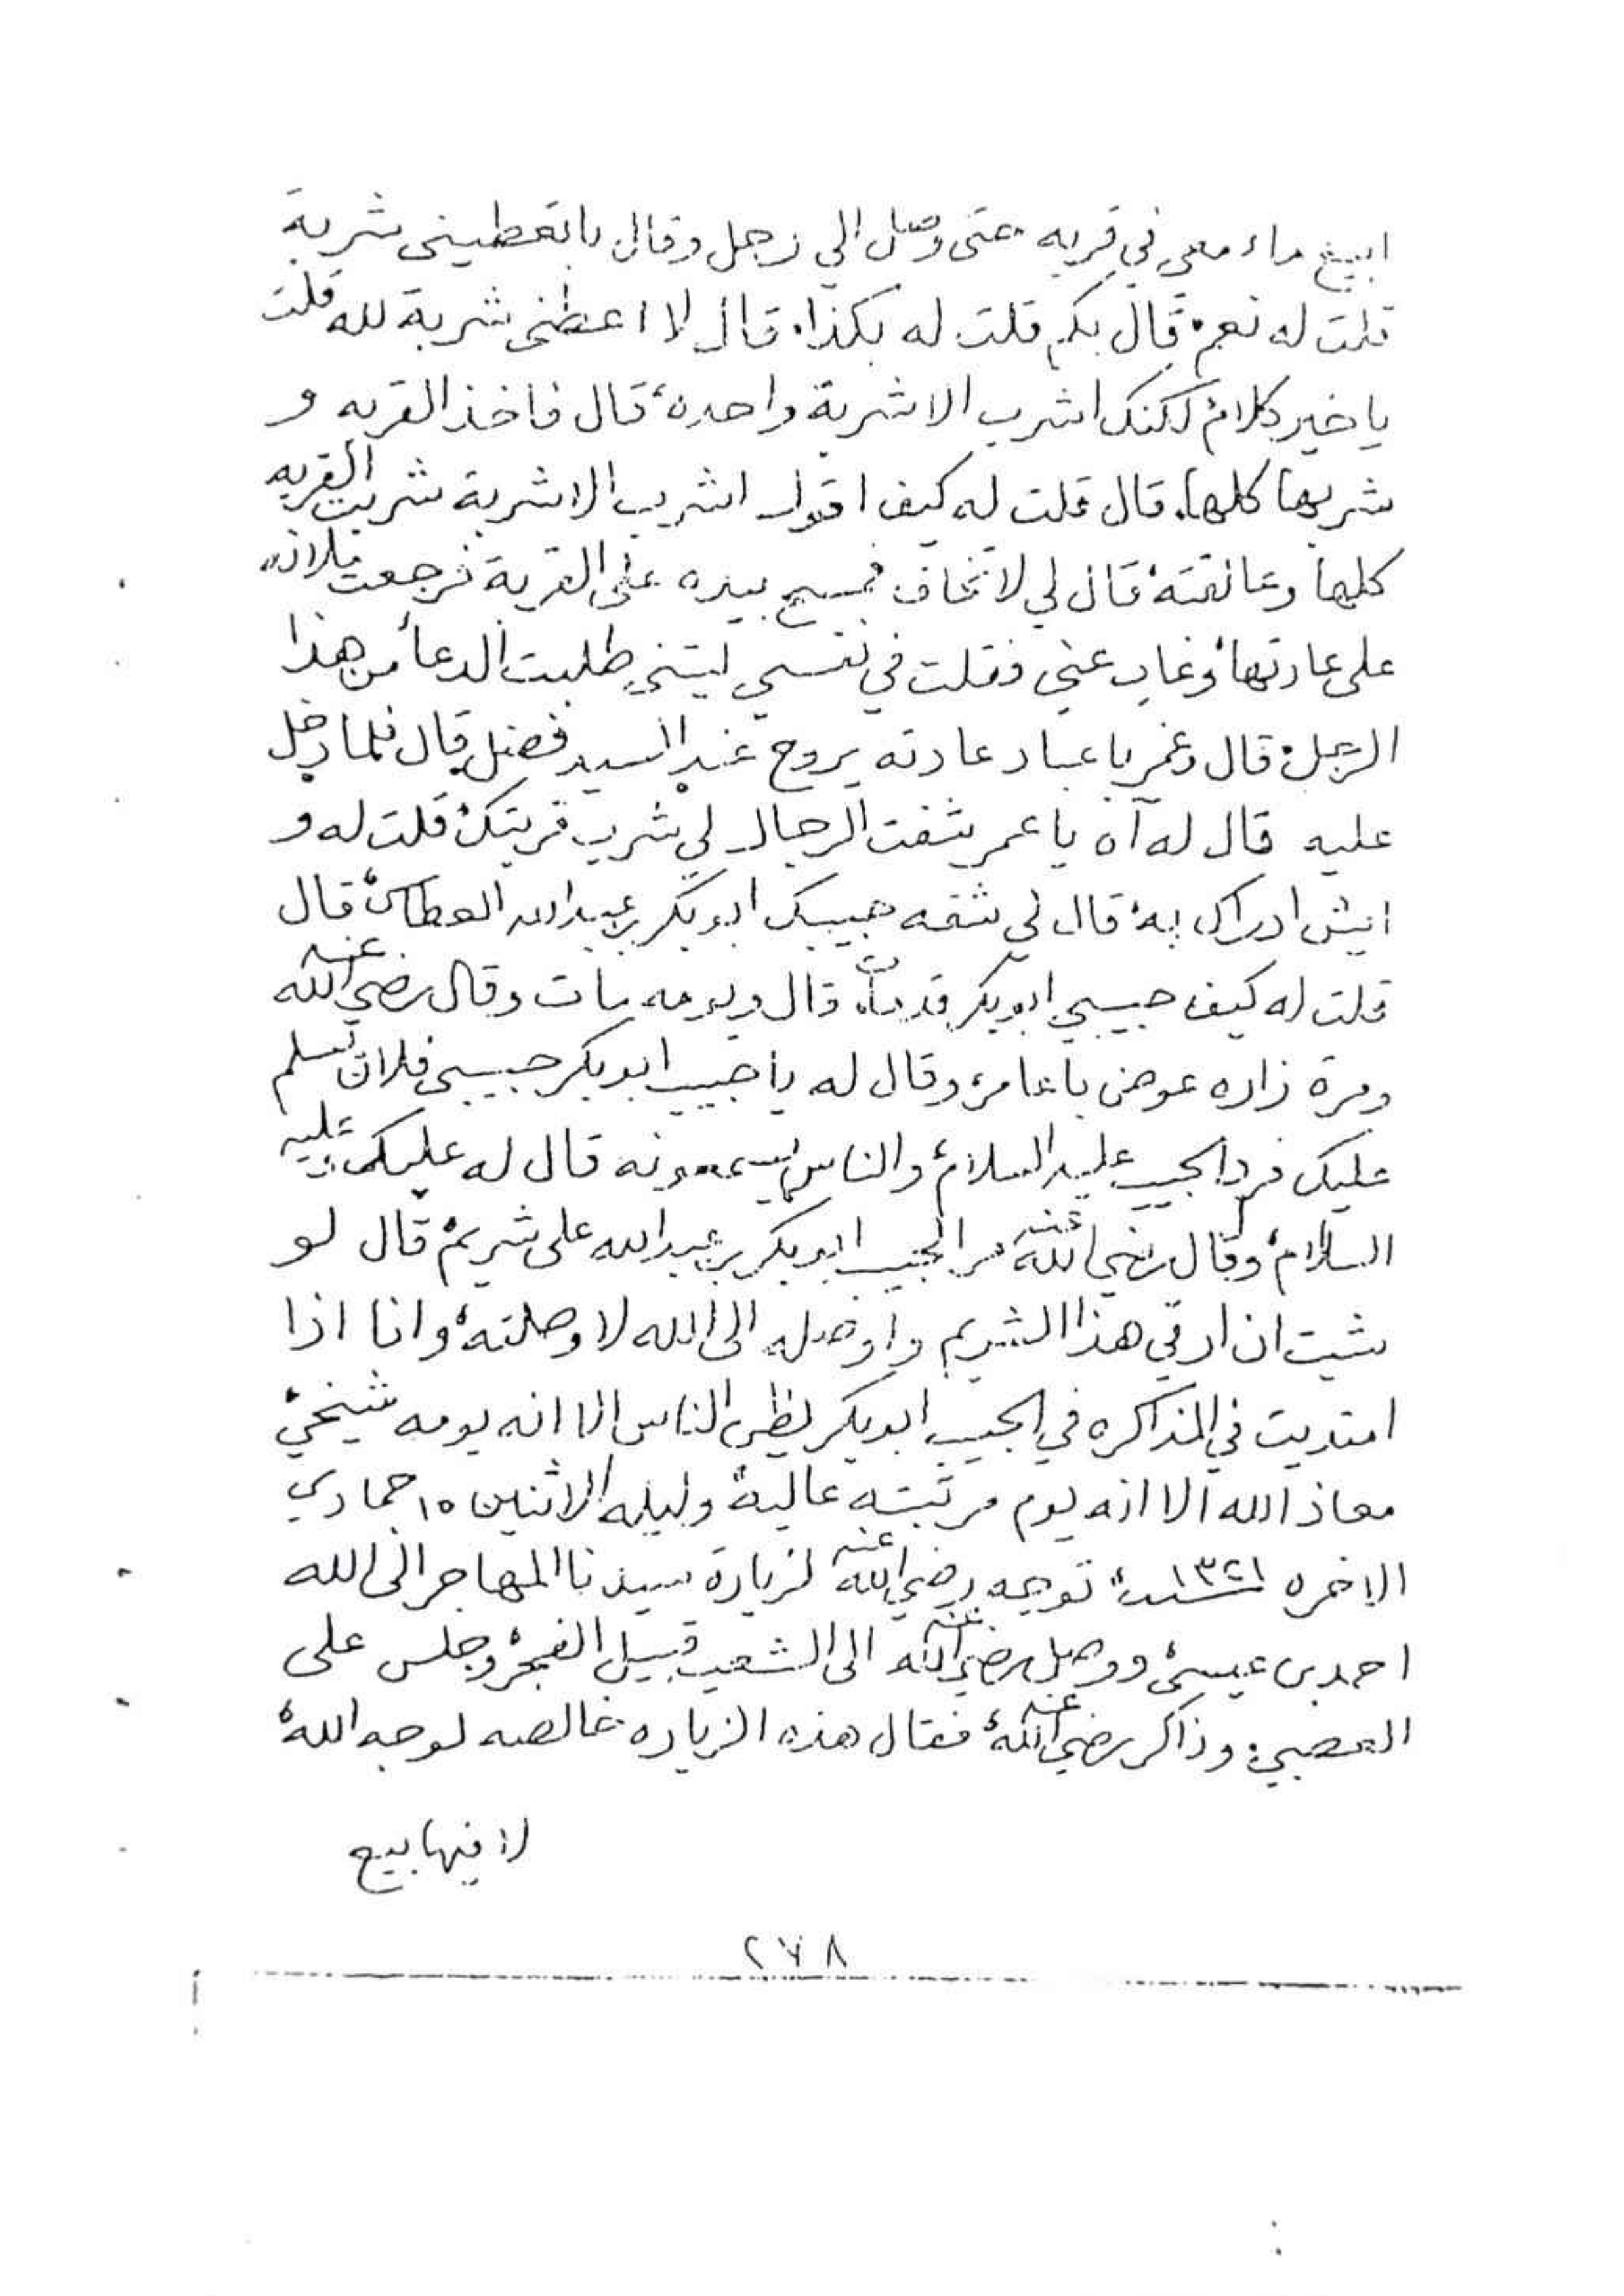 ابيع ماء معي في قربه حتى وصل الي رجل وقال باتعطيني شربة
قلت له نعم، قال بكم قلت له بكذا، قال لا اعطني شربة لله قلت
يا خير كلام لكنك اشرب الا شربة واحدة، قال فاخذ القربه و
شربها كلها. قال قلت له كيف اقول اشرب الا شربة شربت القربه
كلها وعانقته، قال لي لا تخاف فمسح بيده على القربة فرجعت ملانه
على عادتها، وغاب عني فقلت في نفسي ليتني طلبت الدعاء من هذا
الرجل، قال وعمر باعباد عادته يروح عند السيد فضل قال فلما دخل
عليه قال له آه يا عمر شفت الرجال لي شرب قربتك، قلت له و
ايش ادراك به، قال لي شفه حبيبك ابوبكر بن عبدالله العطاس، قال
قلت له كيف حبيبي ابوبكر قد مات، قال ويومه مات وقال رضي الله عنه
ومرة زاره عوض باعامر، وقال له يا حبيب ابوبكر حبيبي فلان يسلم
عليك فرد الحبيب عليه السلام، والناس يسمعونه قال له عليك وعليه
السلام، وقال رضي الله عنه مر الحبيب ابوبكر بن عبدالله على شريم، قال لو
شيت ان ارقي هذا الشريم واوصله الى الله لاوصلته، وانا اذا
امتديت في المذاكره في الحبيب ابوبكر يظن الناس الا انه يومه شيخي،
معاذ الله الا انه يوم مرتبته عالية، وليلة الاثنين ١٥ جمادي
الاخره سنة ١٣٢١، توجه رضي الله عنه لزيارة سيدنا المهاجر الى الله
احمد بن عيسى، ووصل رضي الله عنه الى الشعيب قبيل الفجر، وجلس على
الصبي، وذاكر رضي الله عنه، فقال هذه الزياره خالصه لوجه الله،
لا فيها بيع
٢٧٨